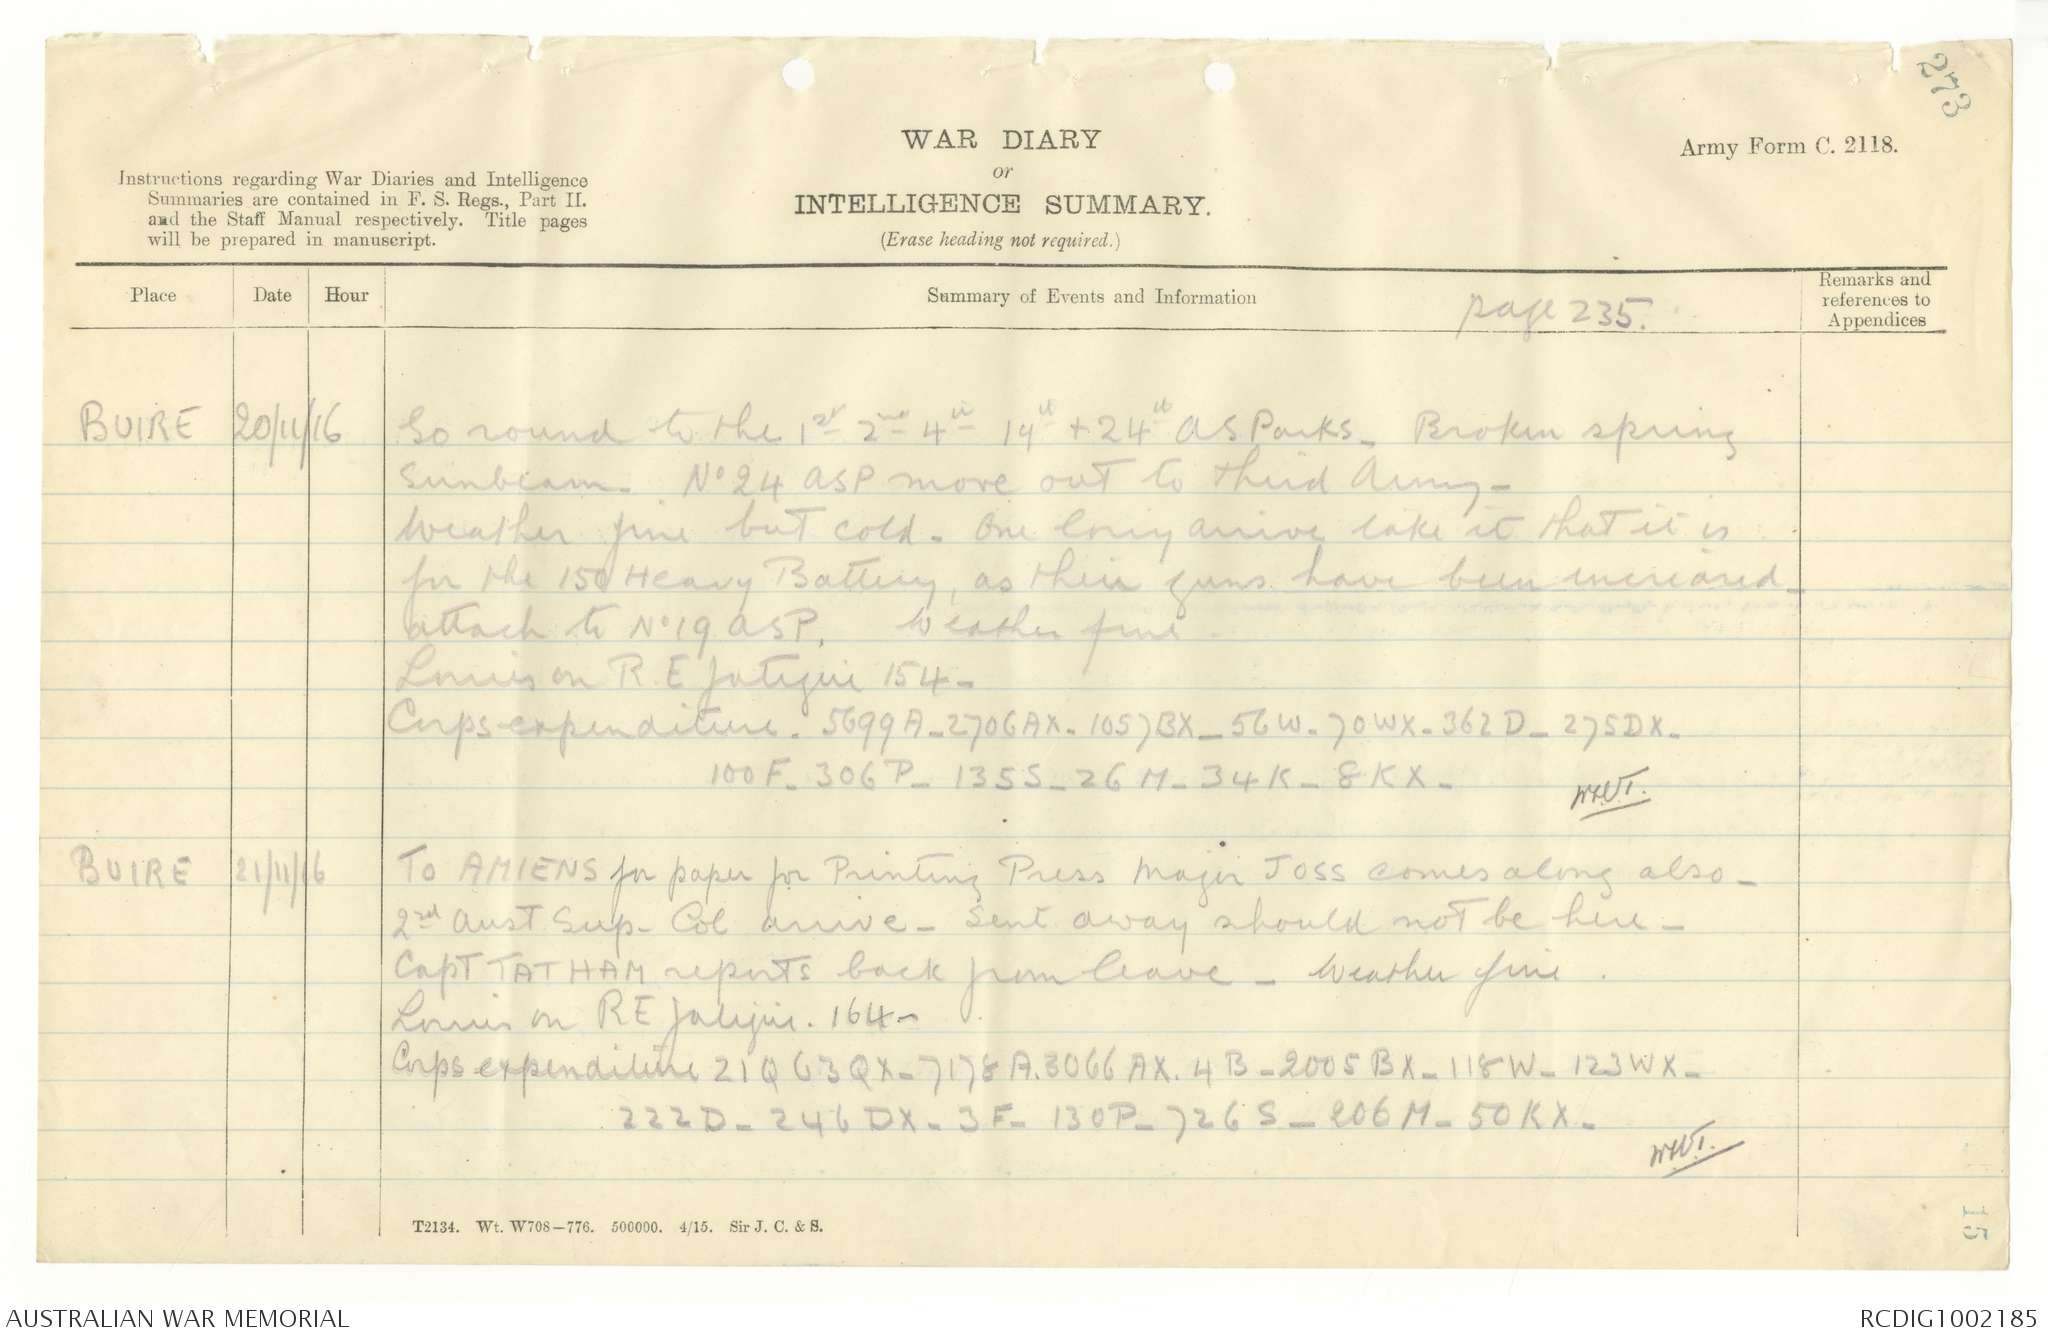 273
WAR DIARY
or
INTELLIGENCE SUMMARY.
(Erase heading not required.)
Army Form C. 2118.
Instructions regarding War Diaries and Intelligence
Summaries are contained in F. S. Regs., Part II.
and the Staff Manual respectively. Title pages
will be prepared in manuscript.
Place
Date
Hour
Summary of Events and Information
page 235.
Remarks and
references to
Appendices
BUIRE 20/11/16 Go round to the 1st 2nd 4th 19th + 24th ASParks - Broken spring
Sunbeam - No 24 ASP move out to third Army -
Weather fine but cold - One lorry arrive take it that it is
for the 150 Heavy Battery, as their guns have been increased -
attach to No 19 ASP. Weather fine.
Lorries on R.E fatigue 154 -
Corps expenditure. 5699A - 2706AX - 1057BX - 56W - 70WX - 362D - 275DX -
100F - 306P - 135S - 26M - 34K - 8KX -
WHVT.
BUIRE 21/11/16 To AMIENS for paper for Printing Press Major JOSS comes along also -
2nd Aust Sup. Col arrive - Sent away should not be here -
Capt TATHAM reports back from leave - Weather fine.
Lorries on RE fatigue. 164 -
Corps expenditure 21Q 63QX - 7178A. 3066AX. 4B - 2005BX - 118W - 123WX -
222D - 246DX - 3F - 130P - 726S - 206M - 50KX -
WHVT.
T2134. Wt. W708-776. 500000. 4/15. Sir J. C. & S.
AUSTRALIAN WAR MEMORIAL
RCDIG1002185